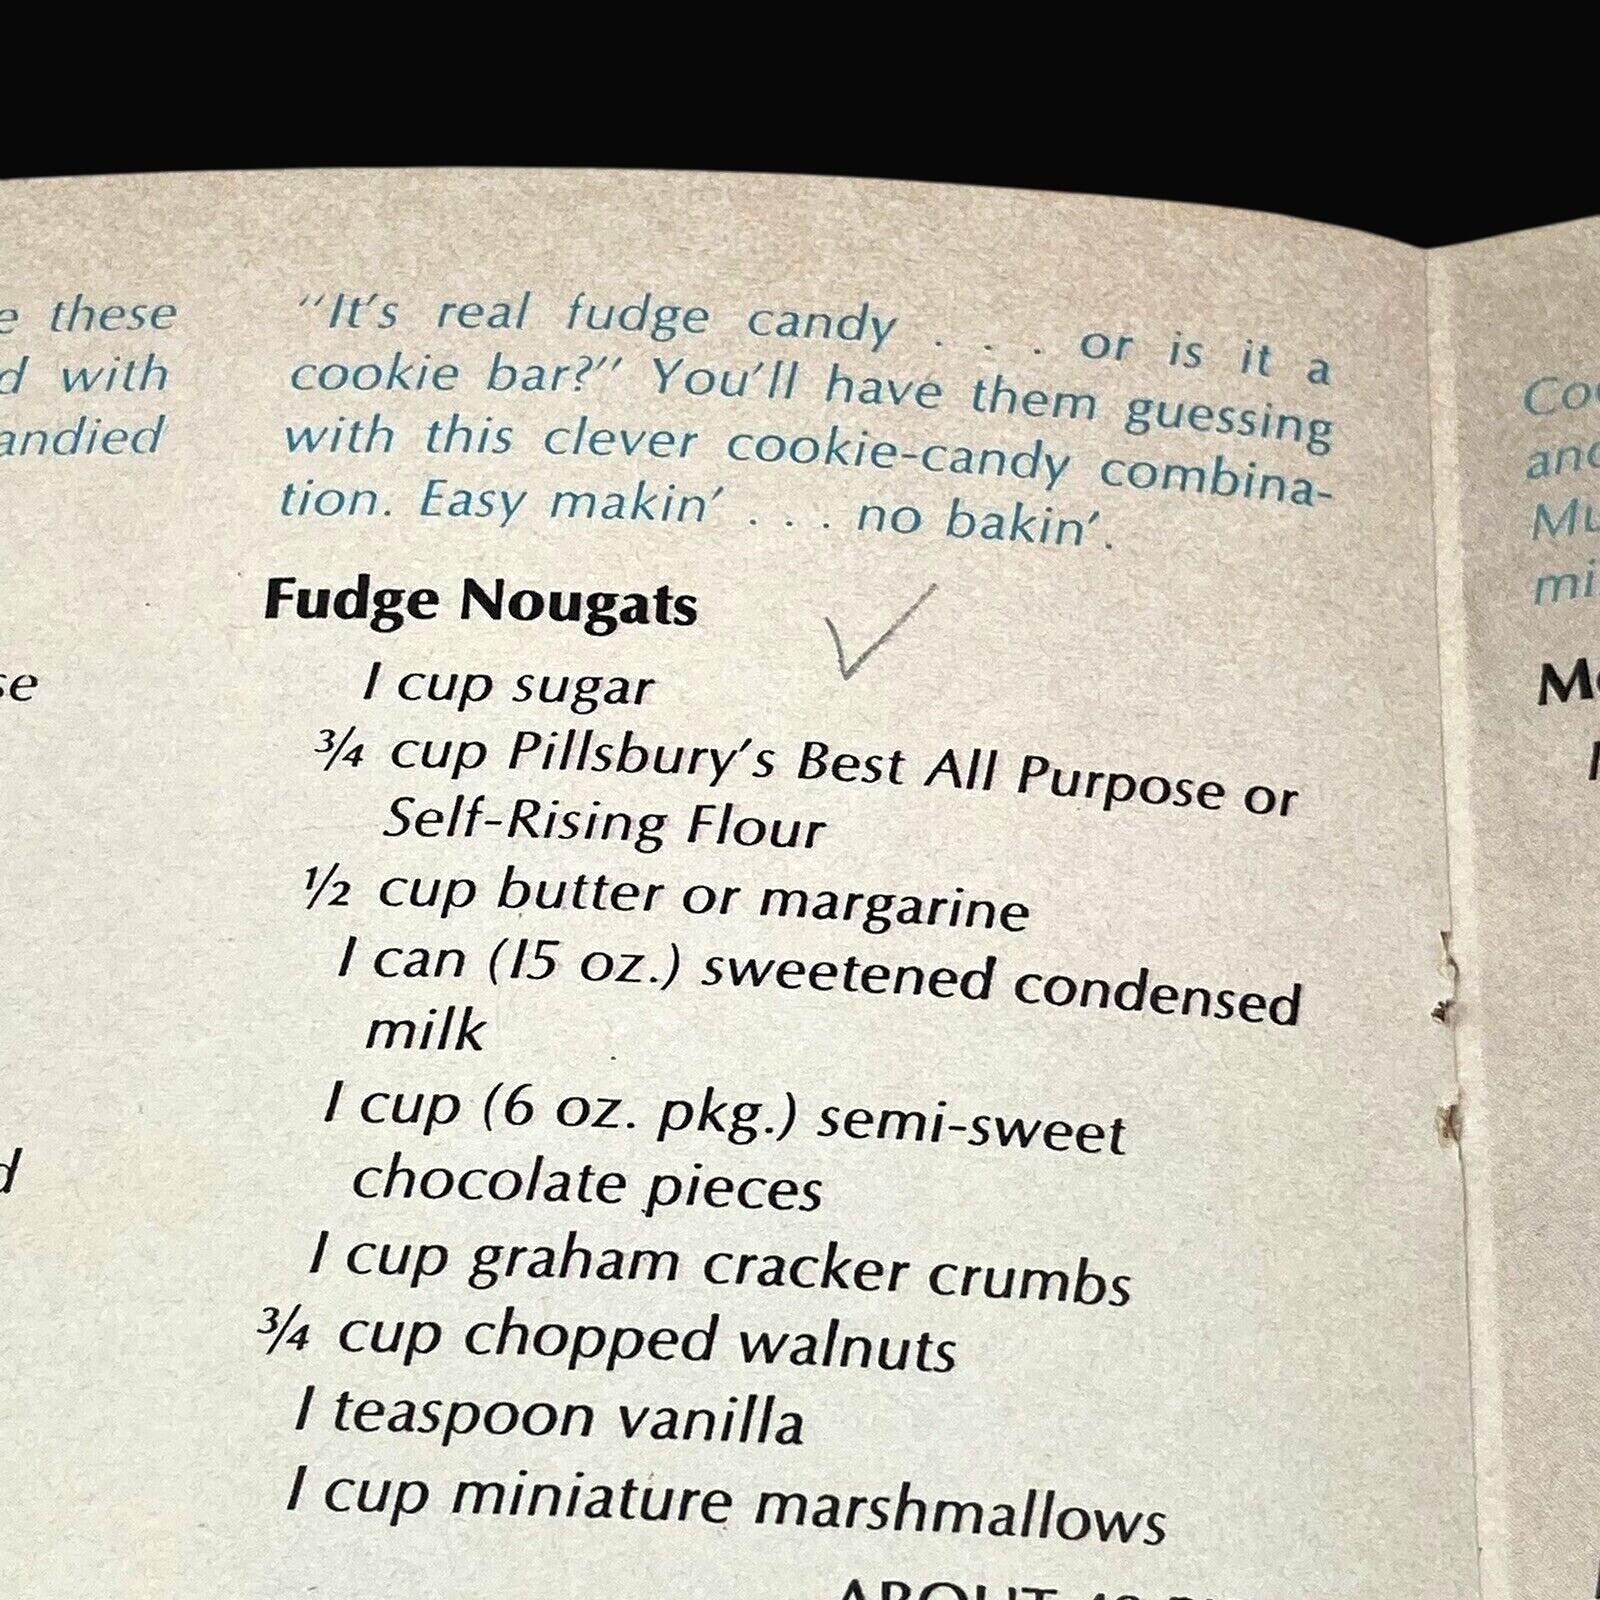 e these
d with
andied
se
d
"It's real fudge candy . . . or is it a
cookie bar?" You'll have them guessing
with this clever cookie-candy combina-
tion. Easy makin' . . . no bakin'.
Fudge Nougats
1 cup sugar
3/4 cup Pillsbury's Best All Purpose or
Self-Rising Flour
1/2 cup butter or margarine
1 can (15 oz.) sweetened condensed
milk
1 cup (6 oz. pkg.) semi-sweet
chocolate pieces
1 cup graham cracker crumbs
3/4 cup chopped walnuts
1 teaspoon vanilla
1 cup miniature marshmallows
ABOUT